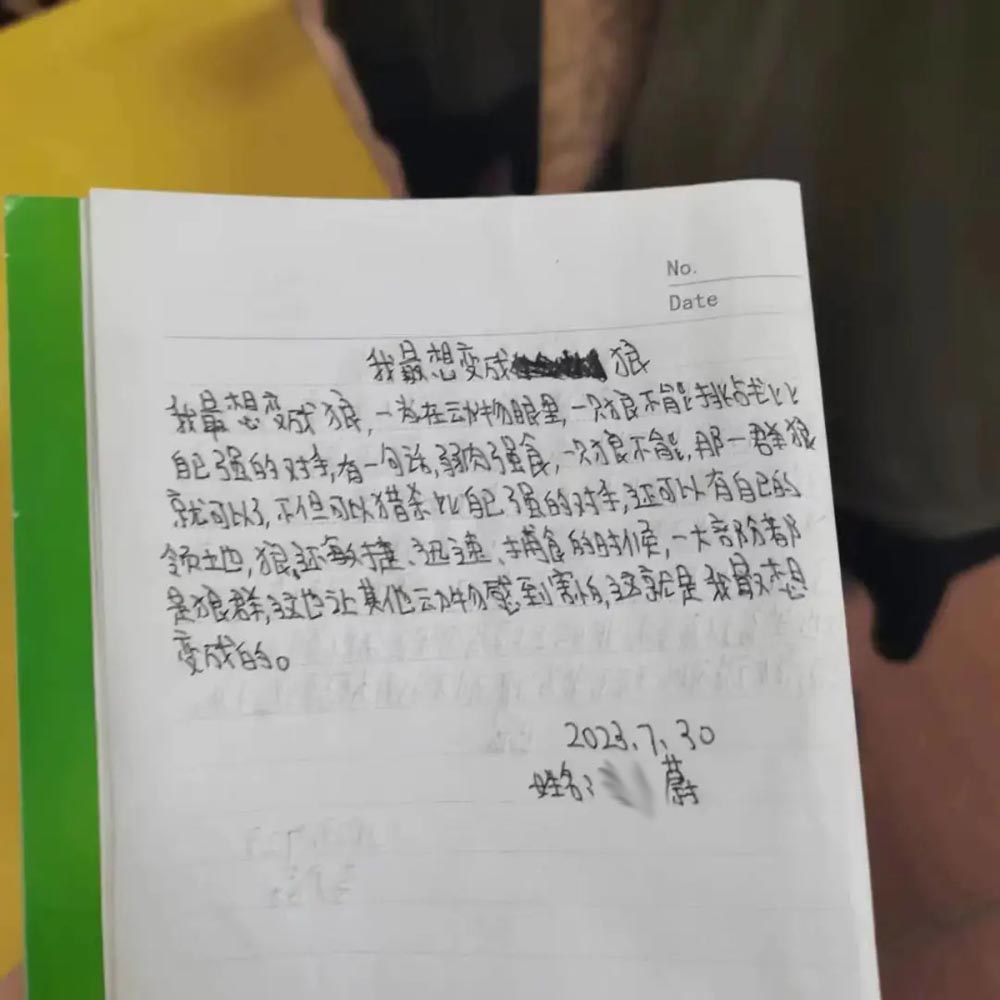 No.
Date
我最想变成 狼
我最想变成狼,一为在动物眼里,一只狼不能挑战比
自己强的对手,有一句话,弱肉强食,一只狼不能,那一群狼
就可以了,不但可以猎杀比自己强的对手,还可以有自己的
领土地,狼还敏捷、迅速、捕食的时候,一大部分都
是狼群,这也让其他动物感到害怕,这就是我最想
变成的。
2023.7.30
姓名: 蔚